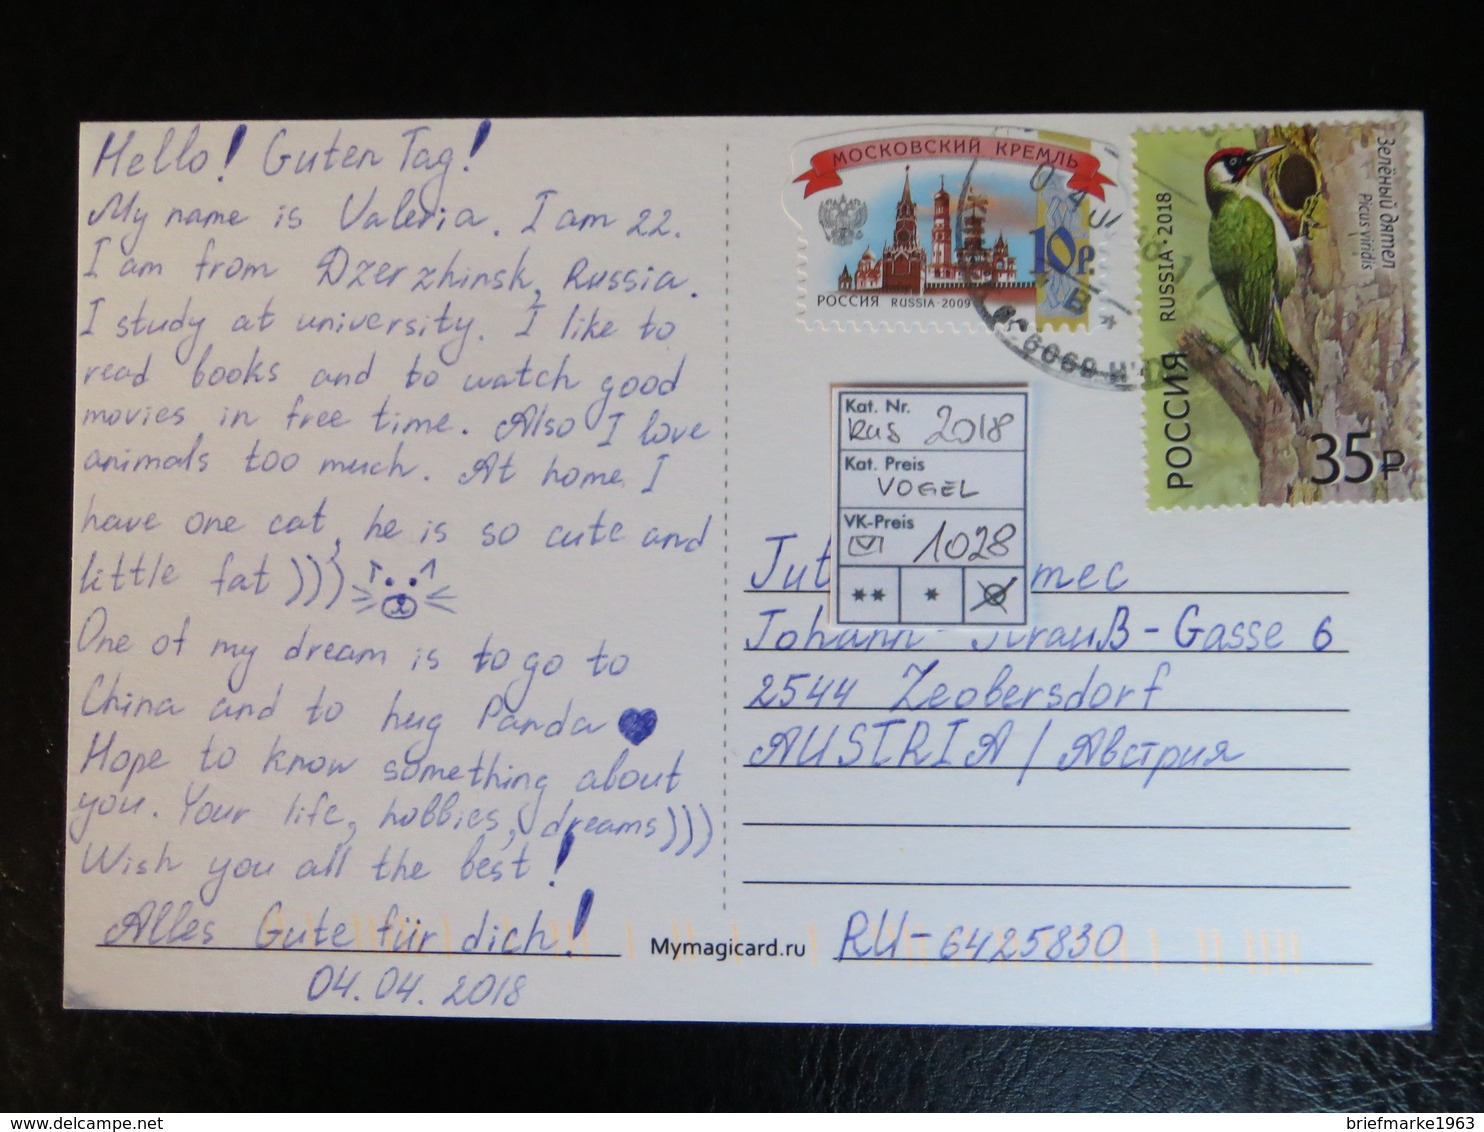 Hello! Guten Tag!
My name is Valeria. I am 22.
I am from Dzerzhinsk, Russia.
I study at university. I like to
read books and to watch good
movies in free time. Also I love
animals too much. At home I
have one cat, he is so cute and
little fat )))
One of my dream is to go to
China and to hug Panda
Hope to know something about
you. Your life, hobbies, dreams)))
Wish you all the best!
Alles Gute für dich!
04.04.2018
Mymagicard.ru
МОСКОВСКИЙ КРЕМЛЬ
10р.
РОССИЯ RUSSIA·2009
Зелёный дятел
Picus viridis
RUSSIA·2018
РОССИЯ
35₽
Kat. Nr.
RUS 2018
Kat. Preis
VOGEL
VK-Preis
1028
** *
Johann-Strauß-Gasse 6
2544 Leobersdorf
AUSTRIA / Австрия
RU-6425830
delcampe.net
briefmarke1963